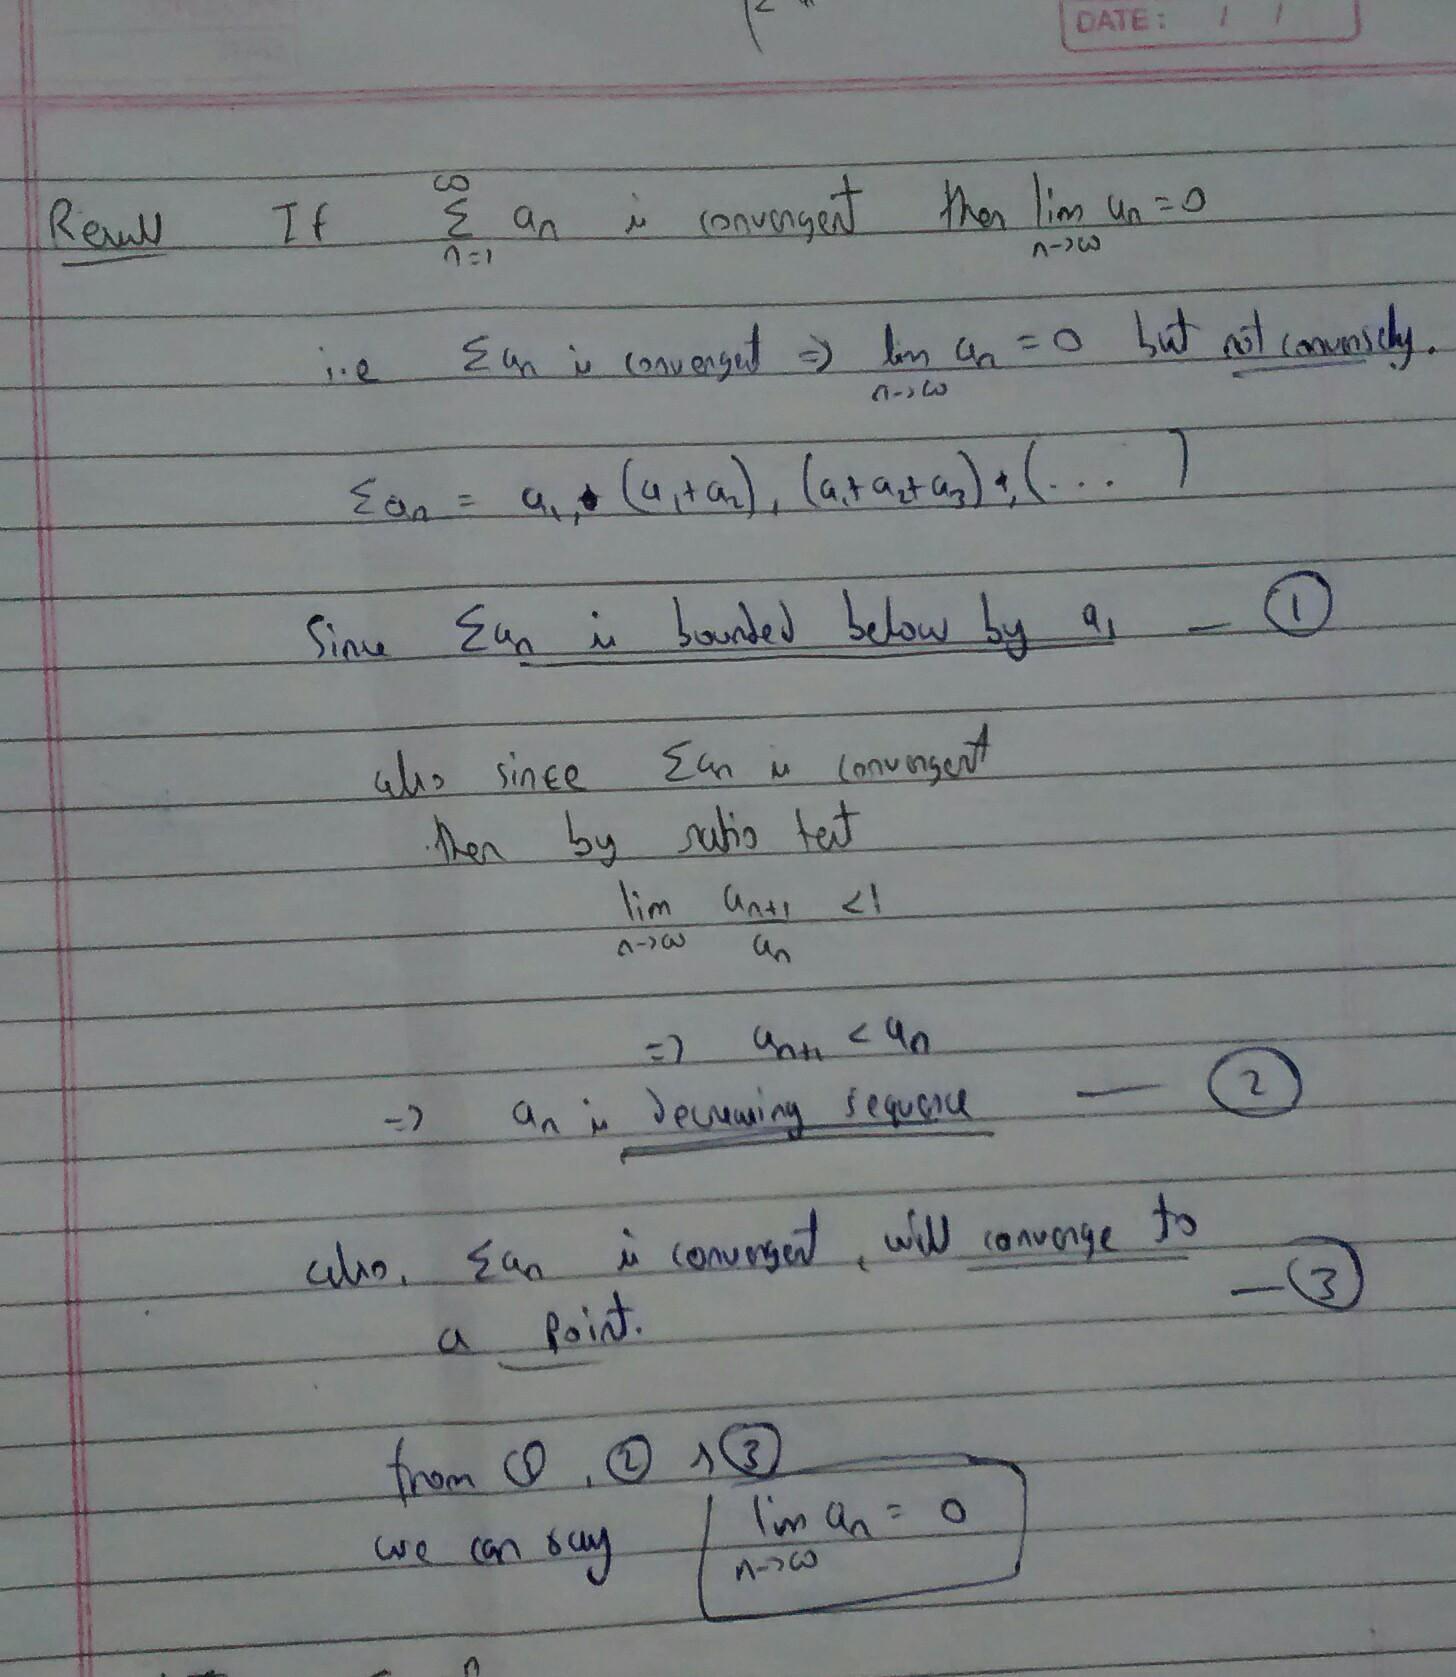 DATE: / /
Result If ∞ Σ n=1 an is convergent then lim n->∞ an = 0
i.e Σan is convergent => lim n->∞ an = 0 but not conversely.
Σan = a1, (a1+a2), (a1+a2+a3), (... )
Since Σan is bounded below by a1 — ①
also since Σan is convergent
then by ratio test
lim n->∞ an+1 / an < 1
=> an+1 < an
=> an is decreasing sequence — ②
also, Σan is convergent, will converge to
a point. — ③
from ①, ② & ③
we can say lim n->∞ an = 0